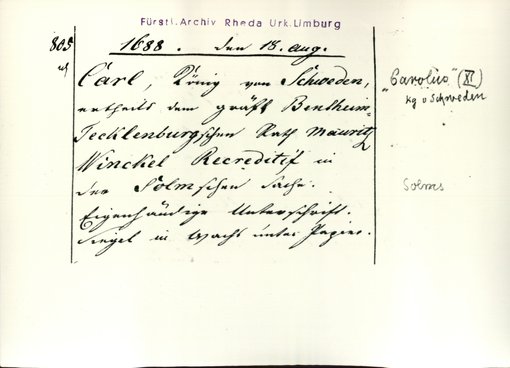 Fürstl. Archiv Rheda Urk. Limburg
805
1688. den 18. aug.
Carl, König von Schweden,
ertheilt dem gräfl Bentheim-
Tecklenburgschen Rath Mauritz
Winckel Recreditif in
der Solmschen Sache.
Eigenhändige Unterschrift.
Siegel in Wachs unter Papier.
"Carolus" (XI)
Kg v Schweden
Solms